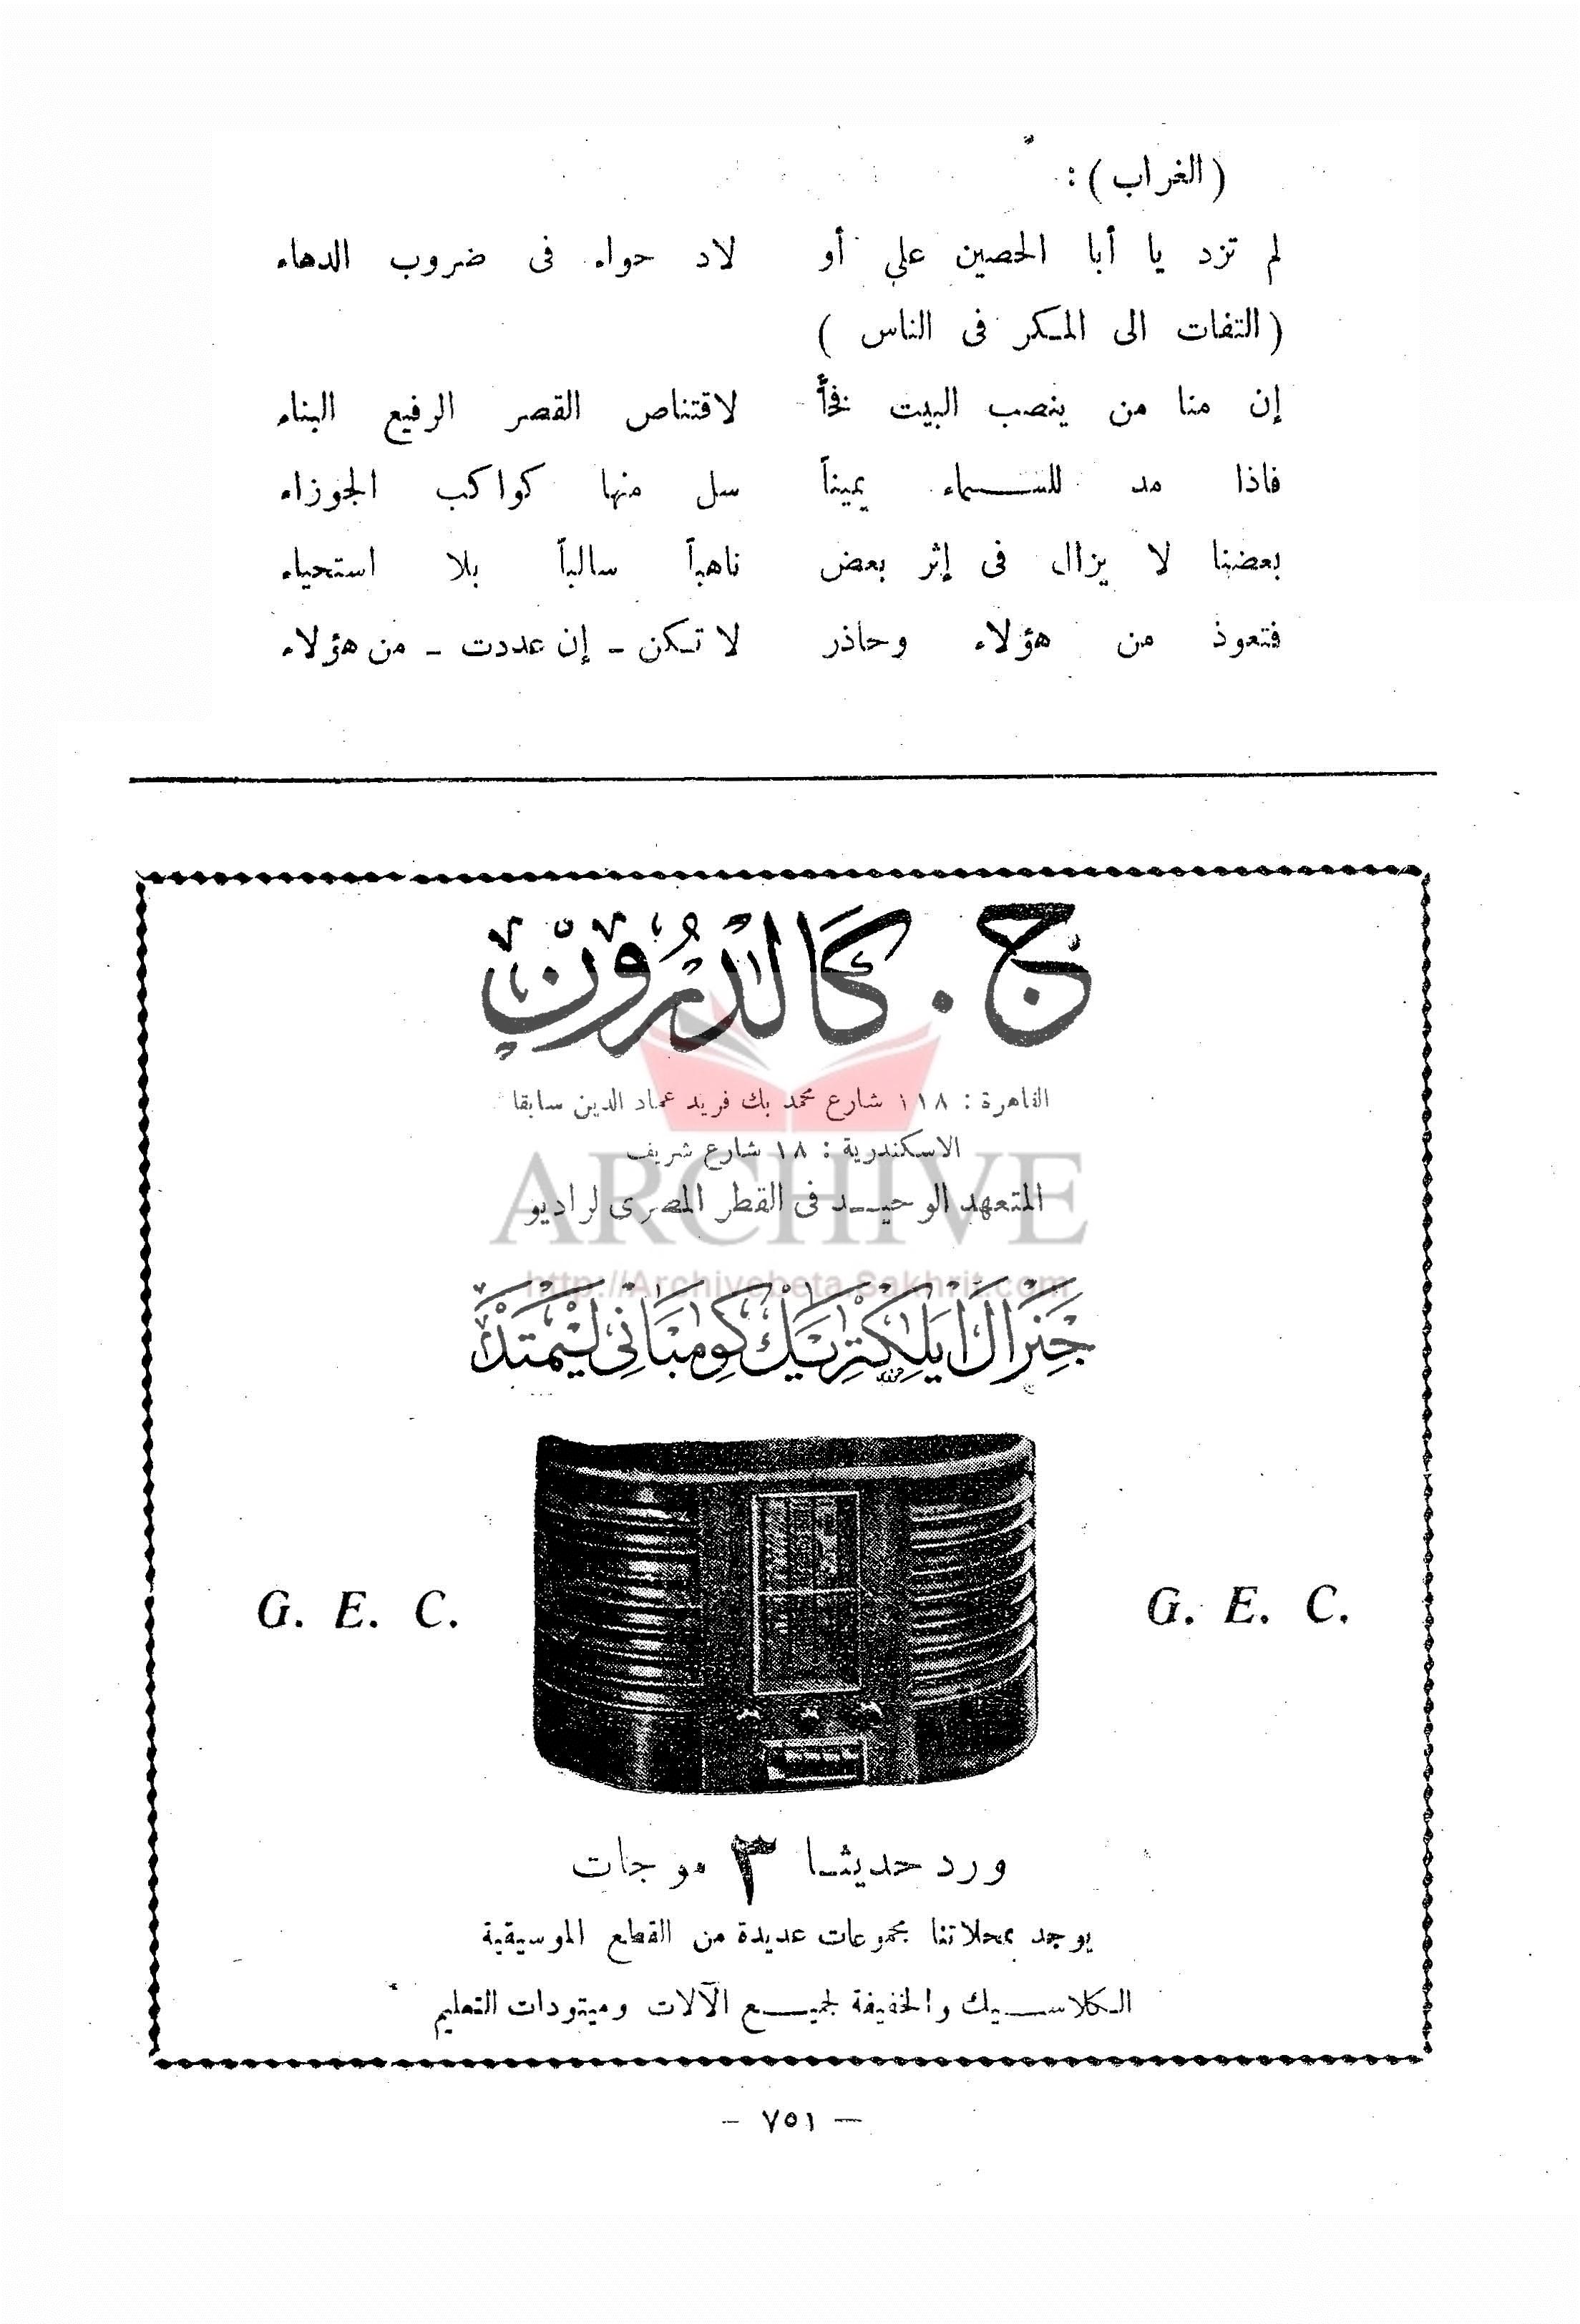 (الغراب) :
لم تزد يا أبا الحصين على أو لاد حواء فى ضروب الدهاء
(التفات الى المكر فى الناس)
إن منا من ينصب البيت فخاً لاقتناص القصر الرفيع البناء
فاذا مد للسماء يميناً سل منها كواكب الجوزاء
بعضنا لا يزال فى إثر بعض ناهباً سالباً بلا استحياء
فتعوذ من هؤلاء وحاذر لا تكن - إن عددت - من هؤلاء
ج. كالدرون
القاهرة : ١١٨ شارع محمد بك فريد عماد الدين سابقا
الاسكندرية : ١٨ شارع شريف
المتعهد الوحيد فى القطر المصرى لراديو
ARCHIVE
http://Archivebeta.Sakhrit.com
جنرال ايلكتريك كومبانى ليمتد
G. E. C. G. E. C.
ورد حديثا ٣ موجات
يوجد بمحلاتنا مجموعات عديدة من القطع الموسيقية
الكلاسيك والخفيفة لجميع الآلات وميتودات التعليم
— ٧٥١ —